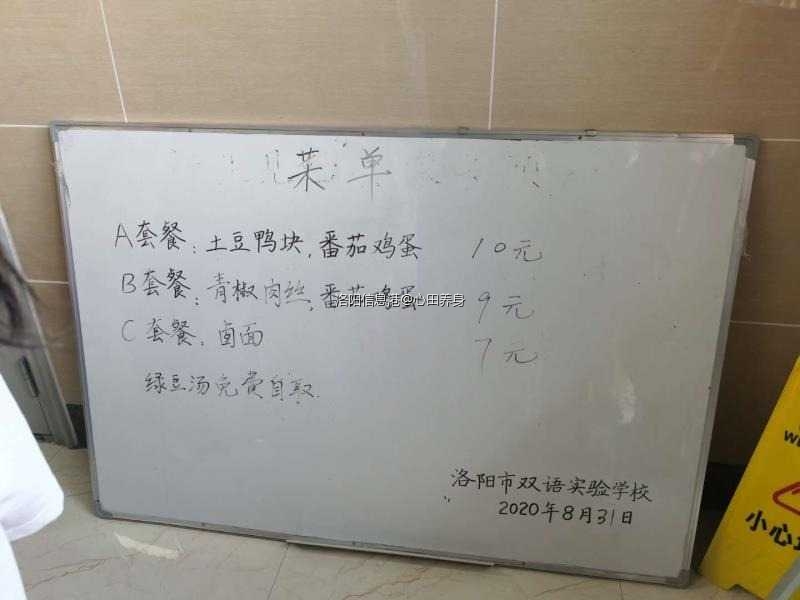 菜单
A套餐：土豆鸭块，番茄鸡蛋 10元
B套餐：青椒肉丝，番茄鸡蛋 9元
C套餐，卤面 7元
绿豆汤免费自取
洛阳信息港@心田养身
洛阳市双语实验学校
2020年8月31日
小心